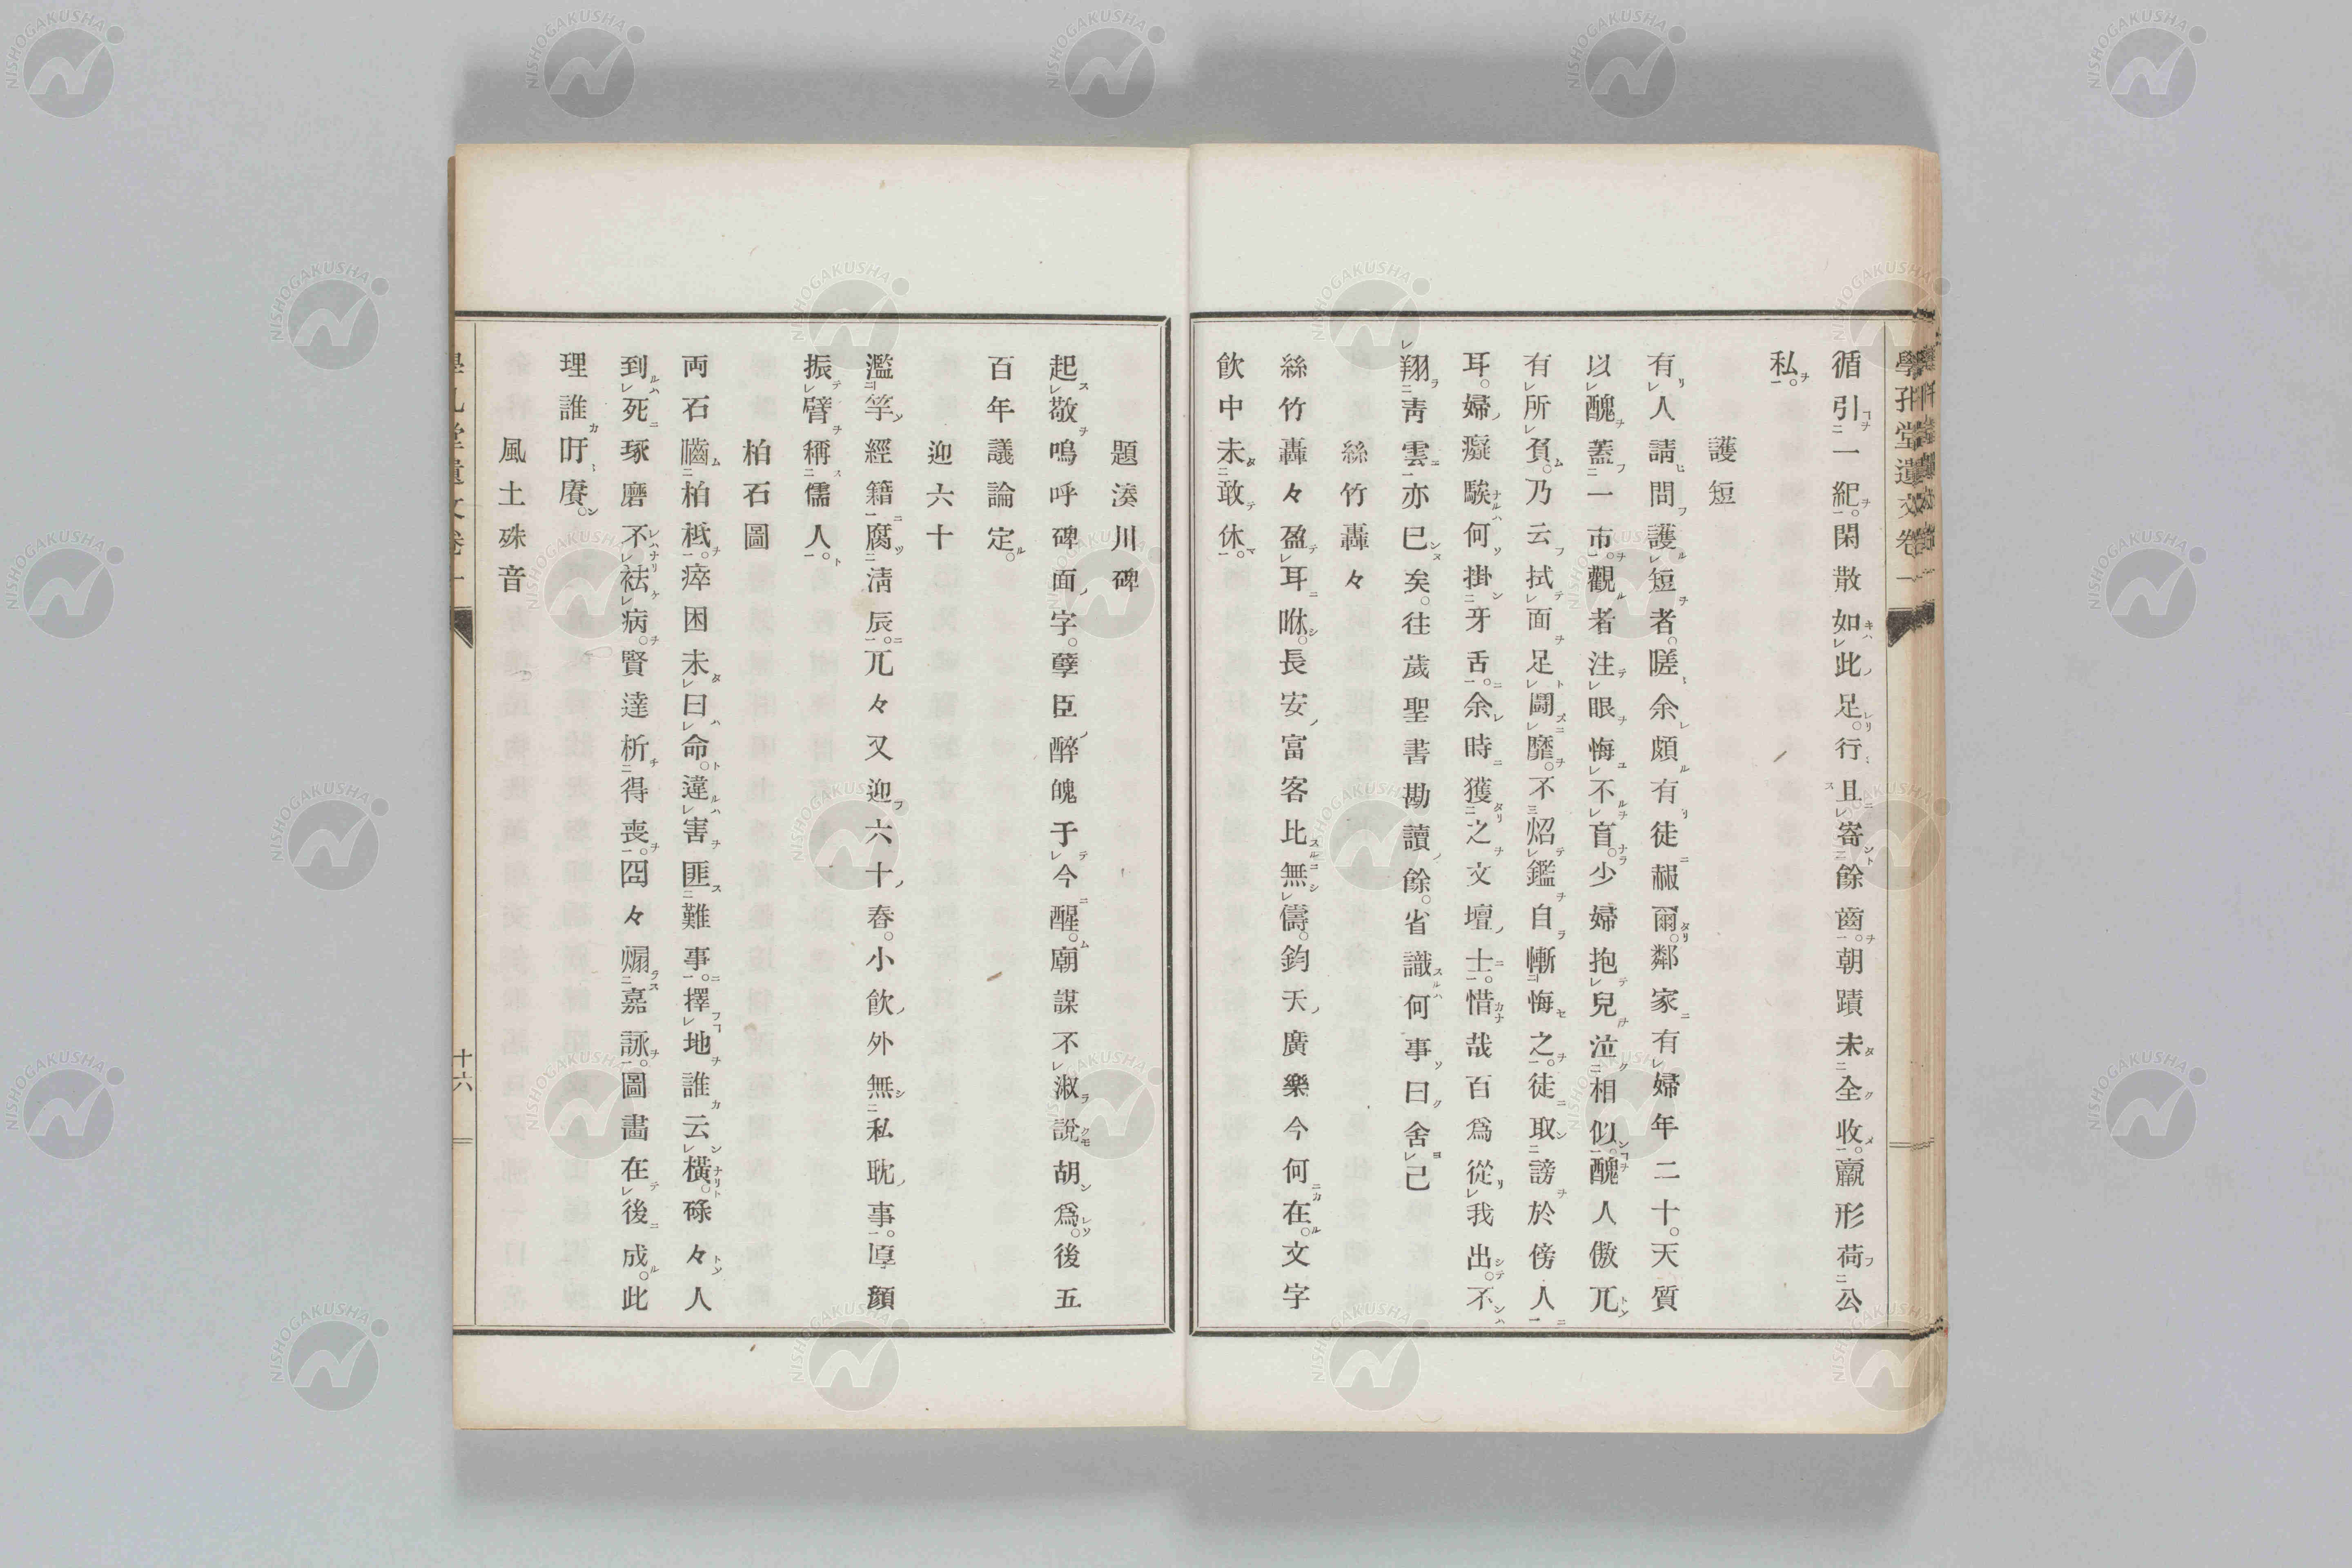 學孔堂遺文卷一
循引一紀。閑散如此足。行且寄餘齒。朝蹟未全收。羸形荷公
私。
護短
有人請問護短者。嗟余頗有徒赧爾。鄰家有婦年二十。天質
以醜蓋一市。觀者注眼悔不盲。少婦抱兒泣相似。醜人傲兀
有所負。乃云拭面足鬪靡。不炤鑑自慚悔之。徒取謗於傍人
耳。婦癡騃何掛牙舌。余時獲之文壇士。惜哉百爲從我出。不
翔靑雲亦已矣。往歲聖書勘讀餘。省識何事曰舍己
絲竹轟々
絲竹轟々盈耳咻。長安富客比無儔。鈞天廣樂今何在。文字
飮中未敢休。
題湊川碑
起敬嗚呼碑面字。孽臣醉魄于今醒。廟謀不淑說胡爲。後五
百年議論定。
迎六十
濫竽經籍腐淸辰。兀々又迎六十春。小飮外無私耽事。厚顏
振臂稱儒人。
柏石圖
両石齒柏柢。瘁困未曰命。違害匪難事。擇地誰云橫。碌々人
到死琢磨不祛病。賢達析得喪。囧々煽嘉詠。圖畫在後成。此
理誰吁賡。
風土殊音
學孔堂遺文卷一
十六
NISHOGAKUSHA